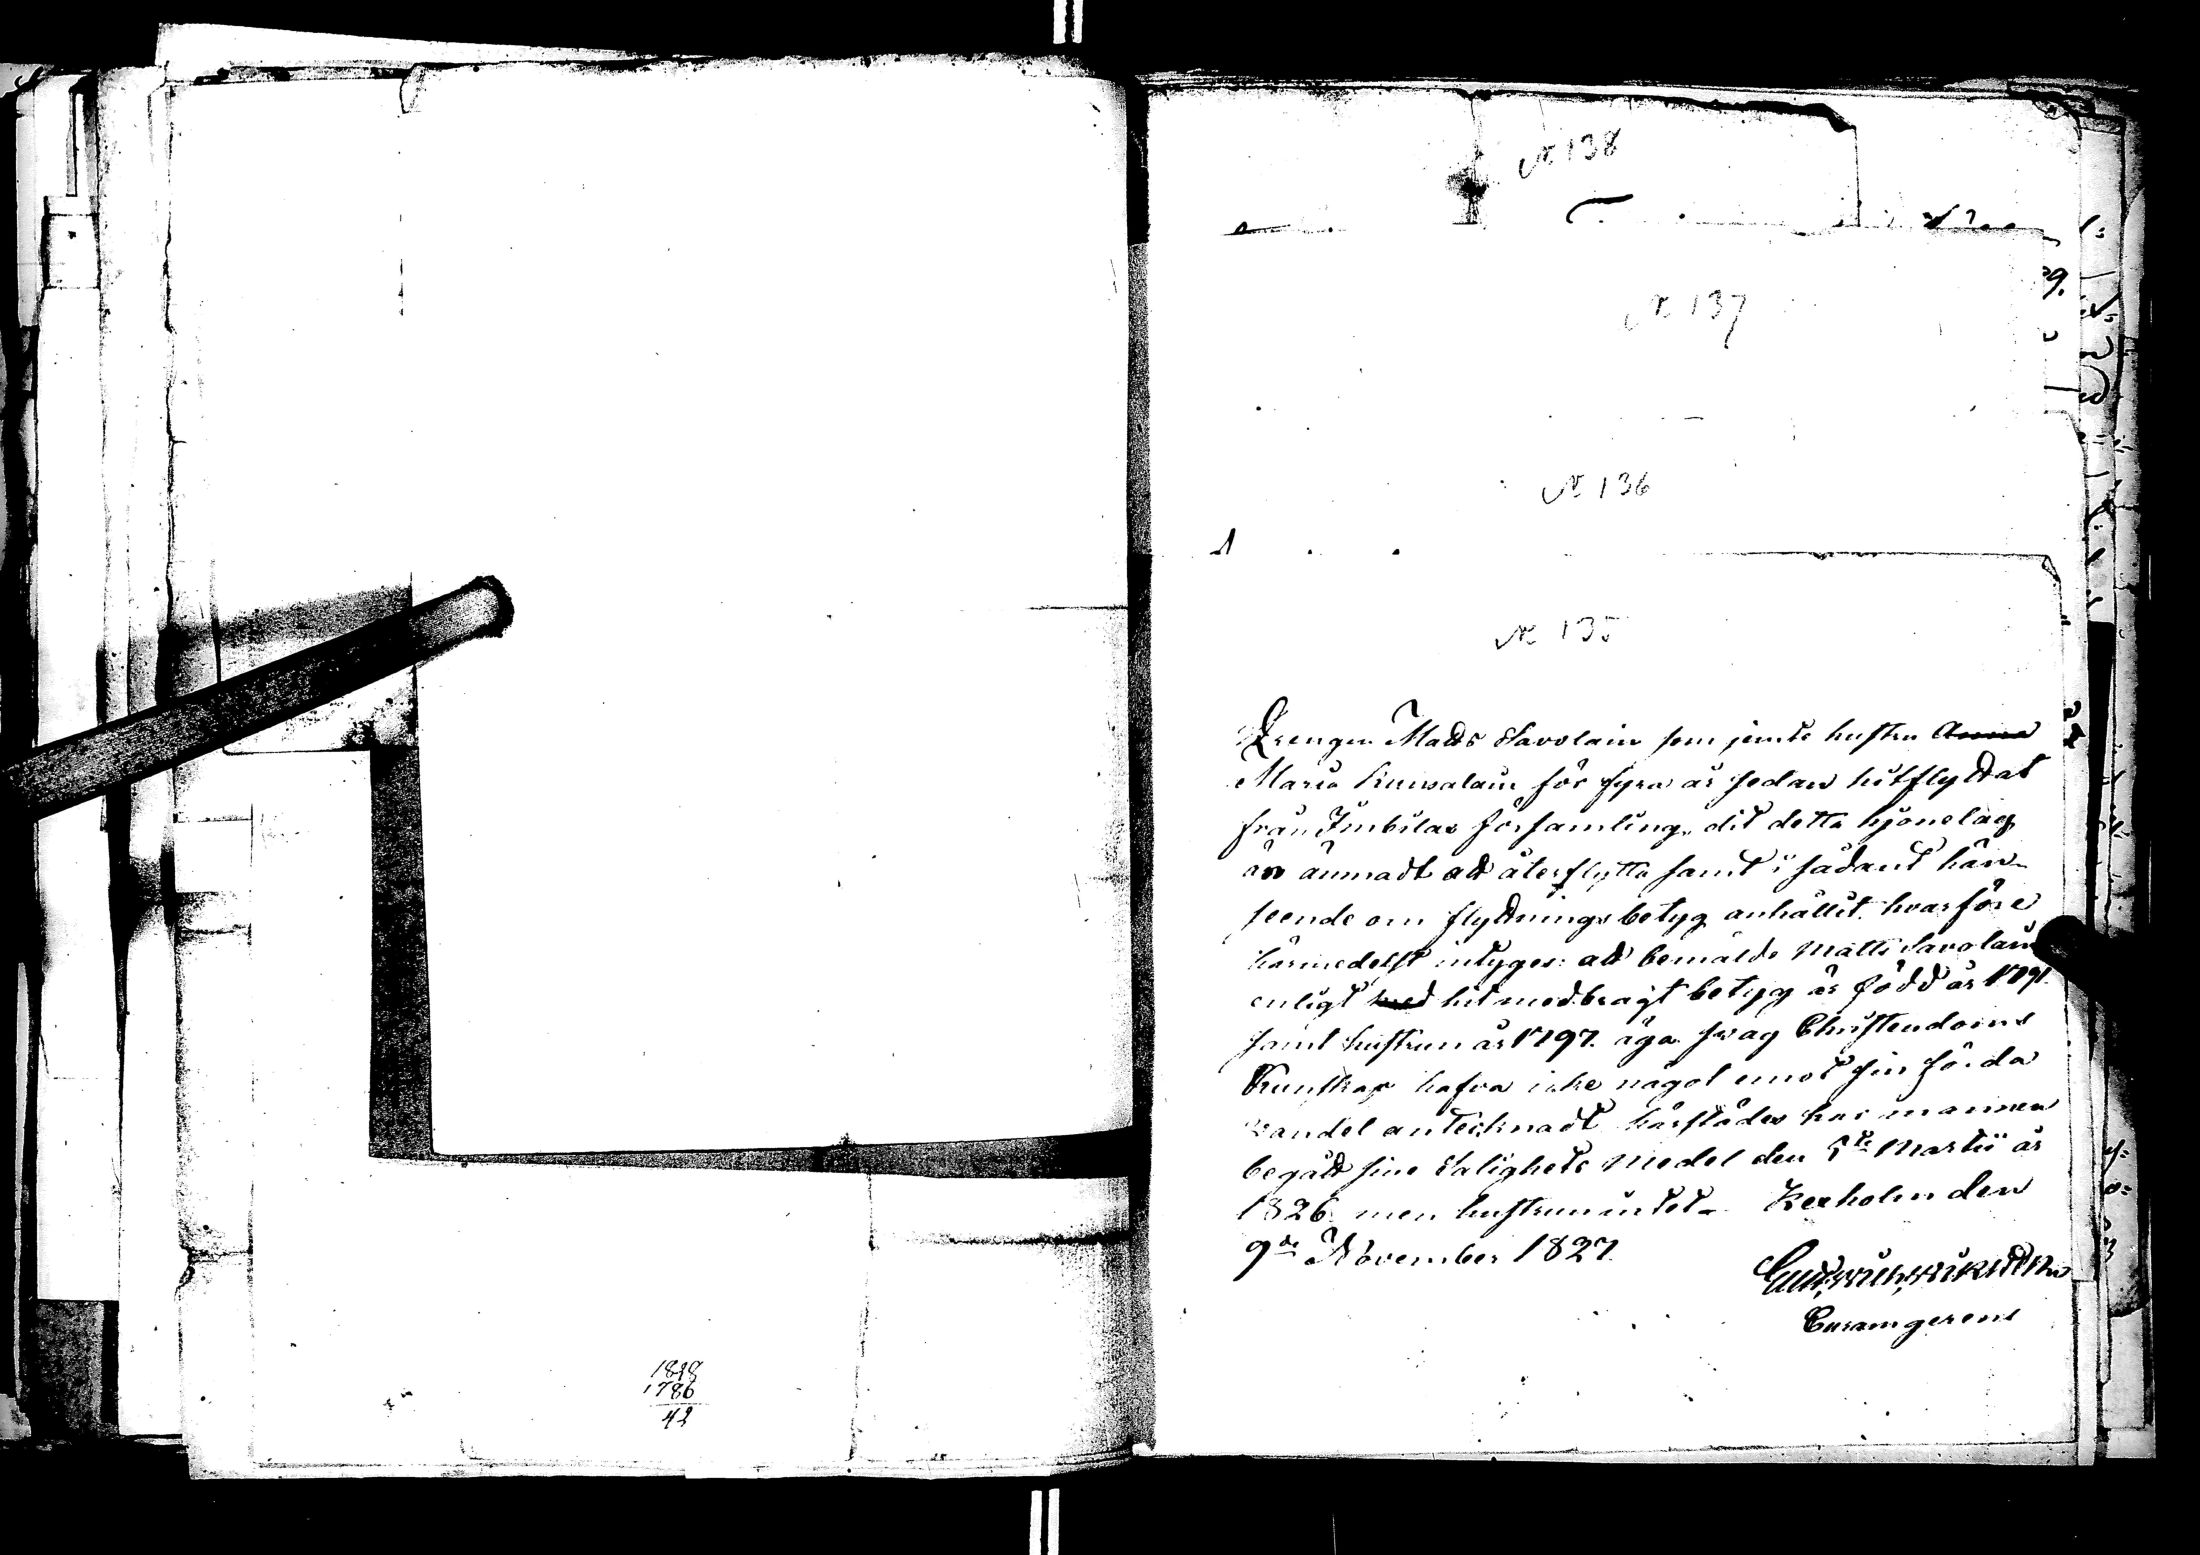 1828
1786
42
№ 138
№ 137
№ 136
№ 135
Drengen Matts Savolain som jemte hustru Anna
Maria för fyra år sedan hitflyttat
från Imbilax församling, dit detta hjonelag
än ämnadt att återflytta samt i sådant hän-
seende om flyttningsbetyg anhållit. hvarföre
härmedelst intyges: att bemälde Matts Savolain
enligt med hitmedbragt betyg är född år 1791.
samt hustrun år 1797. äga svag Christendoms
Kunskap hafva icke något emot sin förda
vandel antecknadt härstädes har mannen
begått sine Salighets Medel den 5te Martii år
1826. men hustrun intet. Kexholm den
9de November 1827.